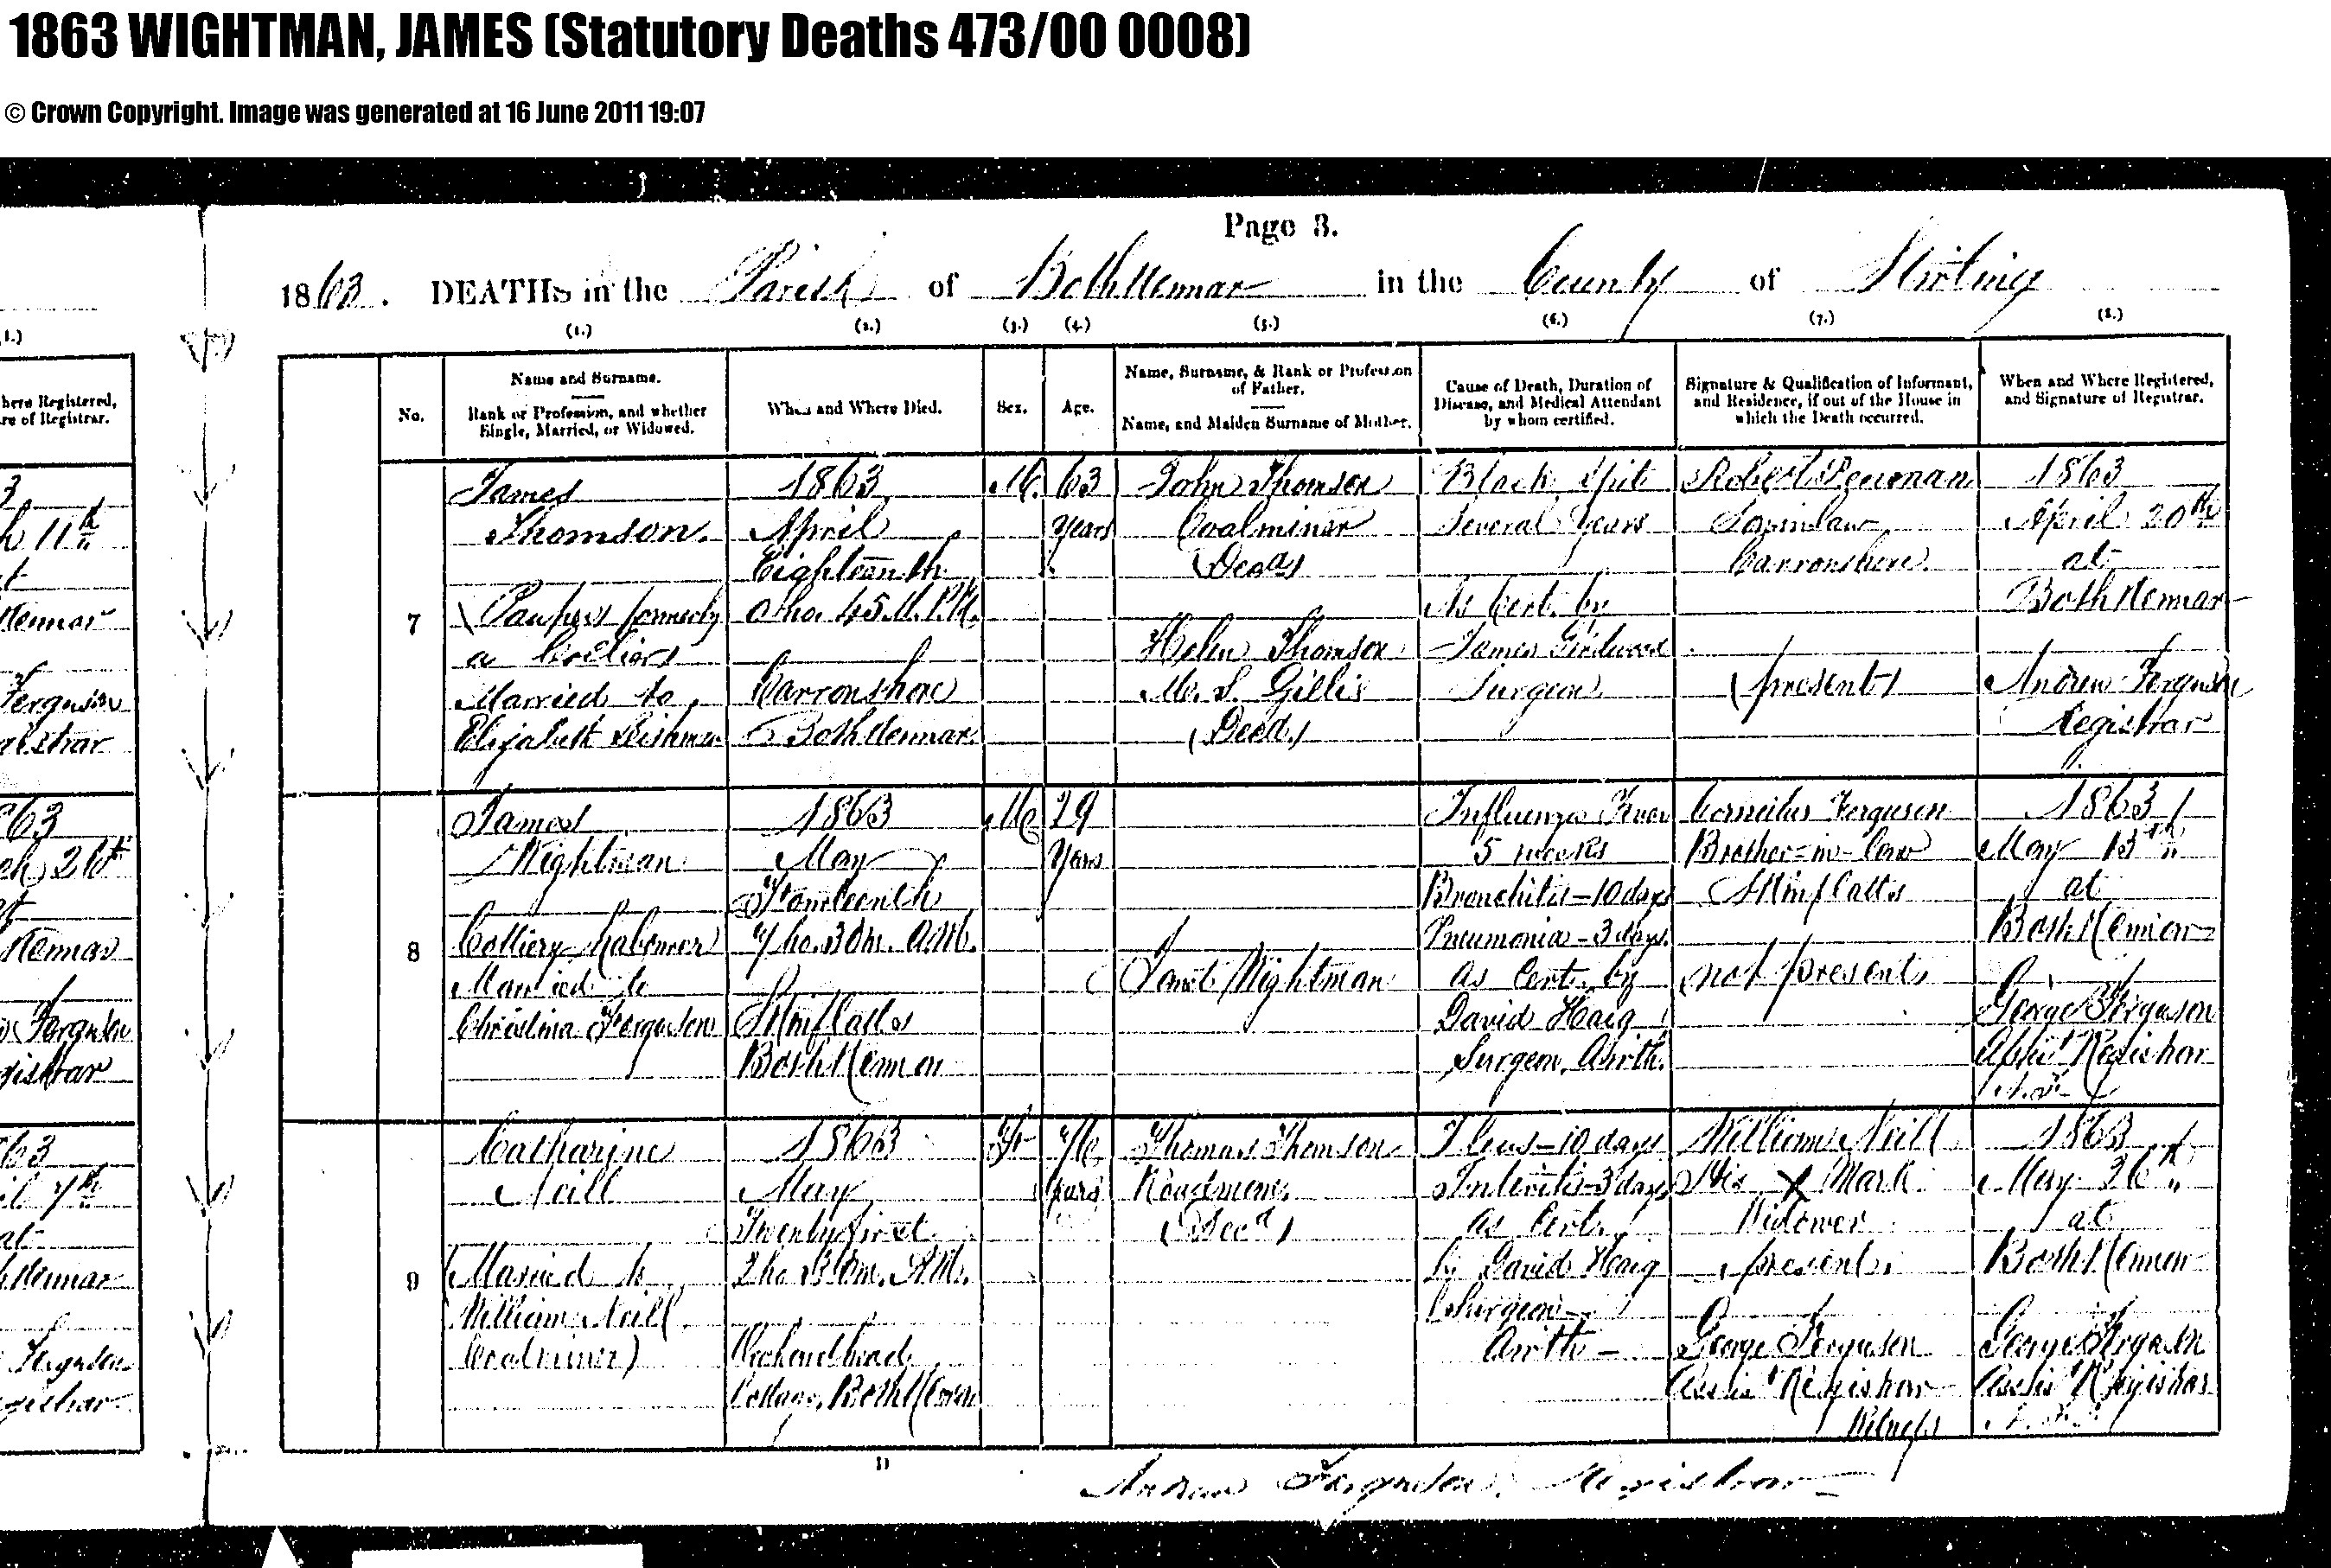 1863 WIGHTMAN, JAMES (Statutory Deaths 473/00 0008)
© Crown Copyright. Image was generated at 16 June 2011 19:07
Page 3.
1863. DEATHS in the Parish of Bothkennar in the County of Stirling
(1.) (2.) (3.) (4.) (5.) (6.) (7.) (8.)
No.
Name and Surname.
Rank or Profession, and whether
Single, Married, or Widowed.
When and Where Died.
Sex.
Age.
Name, Surname, & Rank or Profession
of Father.
Name, and Maiden Surname of Mother.
Cause of Death, Duration of
Disease, and Medical Attendant
by whom certified.
Signature & Qualification of Informant,
and Residence, if out of the House in
which the Death occurred.
When and Where Registered,
and Signature of Registrar.
7
James
Thomson.
Pauper formerly
a
Married to
Elizabeth
1863
April
Eighteenth
Carronshore
Bothkennar
M.
63
years
John Thomson
Coalminer
(Decd)
Helen Thomson
M. S. Gillis
(Decd.)
Black Spit
Several Years
As Cert. by
James Girdwood
Surgeon
Robert Penman
Son in law
Carronshore
(present)
1863
April 20th
at
Bothkennar
Andrew Ferguson
Registrar
8
James
Wightman
Colliery Labourer
Married to
Christina Ferguson
1863
May
7 ho. 30 m. A.M.
Skinflatts
Bothkennar
M.
29
Years
Janet Wightman
Influenza Fever
5 weeks
Bronchitis - 10 days
Pneumonia - 3 days.
as Cert. by
David Haig
Surgeon, Airth.
Cornelius Ferguson
Brother-in-law
Skinflatts
not present
1863
May 15th
at
Bothkennar
George Ferguson
Assist Registrar
9
Catharine
Neill
Married to
William Neill
Coalminer)
1863
May
Twenty first
2 ho. 30 m. A.M.
Cottage, Bothkennar
F
Years
Thomas Thomson
(Decd)
Ileus - 10 days
Enteritis - 3 days
as Cert.
by David Haig
Surgeon
Airth -
William Neill
His X Mark
Widower
present.
George Ferguson
Assist Registrar
Witness
1863
May 26th
at
Bothkennar
George Ferguson
Assist Registrar
D
Andrew Ferguson, Registrar